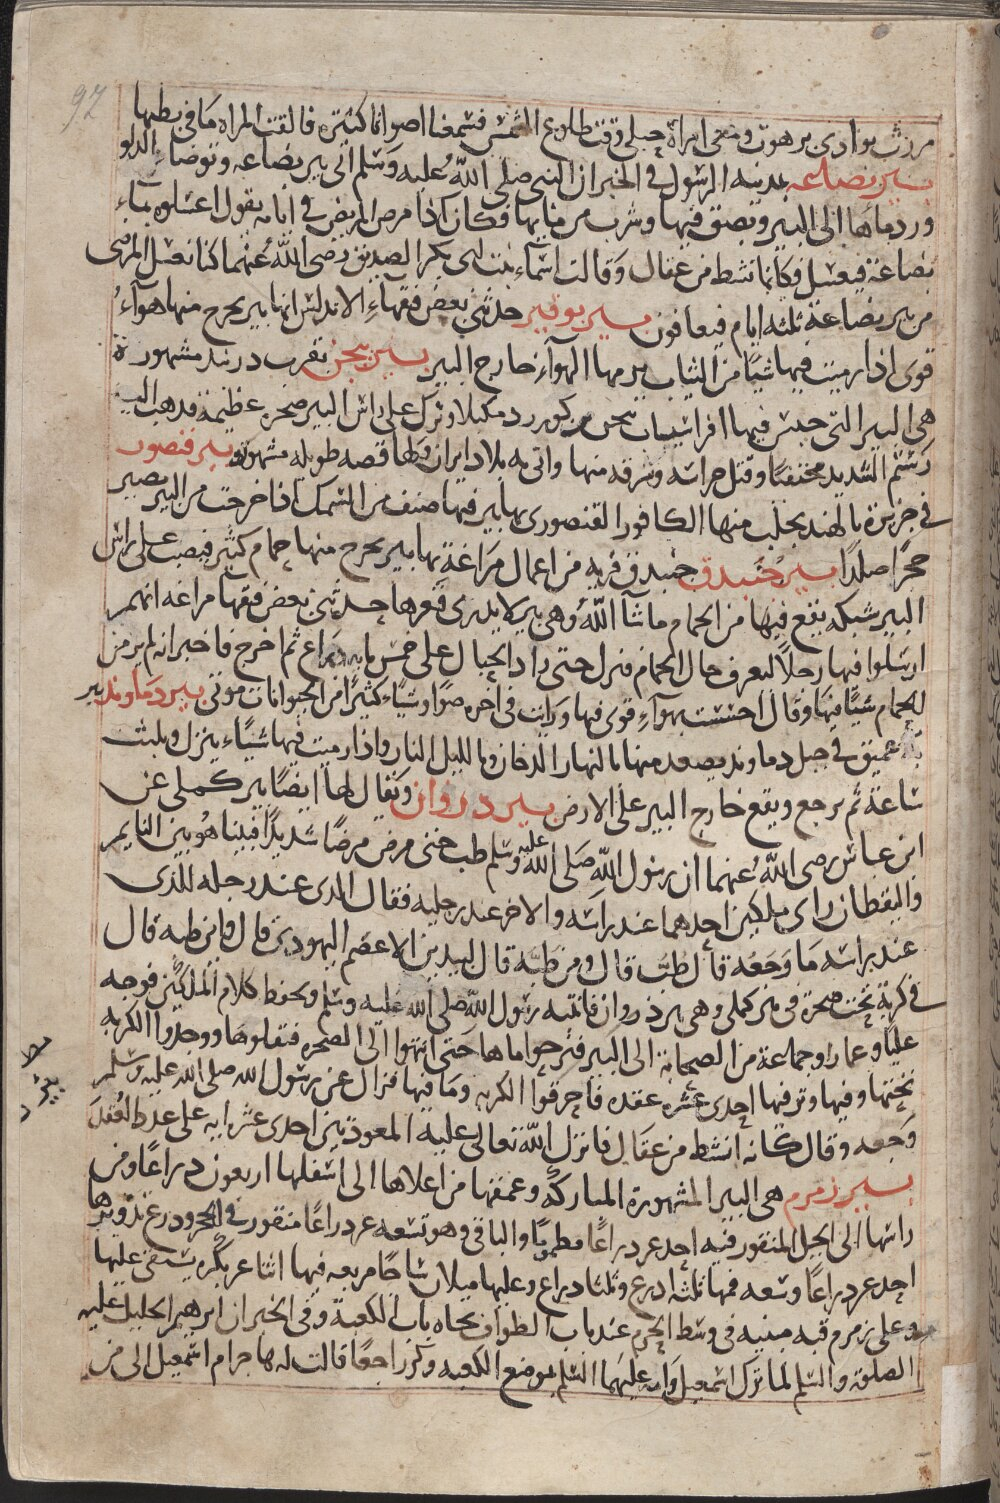 97
مررت بوادى برهوت ومعى امراة حبلى وقت طلوع الشمس فسمعنا اصواتا كثيره فالقت المراه ما فى بطنها
بير بضاعه بمدينه الرسول فى الخبر ان النبى صلى الله عليه وسلم اتى بير بضاعه وتوضاء الدلو
ورد ماها الى البير وبصق فيها وشرب من مايها فكان اذا مرض المريض فى ايامه يقول اغسلوه بماء
بضاعة فيغسل فكانما نشط من عقال وقالت اسماء بنت ابى بكر الصديق رضى الله عنهما كنا نغسل المرضى
من بير بضاعة ثلثه ايام فيعافون بير بوقير حدثنى بعض فقهاء الاندلس انها بير يخرج منها هواءٌ
قوى اذا رميت فيها شيًا من الثياب يرميها الهوآء خارج البير بير بيجن بقرب دربند مشهورة
هى البير التى حبس فيها افراسياب بيجن بن كودرد مكبلا وترك على راس البير صخره عظيمة فذهب اليه
رستم الشديد مختفيًا وقتل حراسه وسرقه منها واتى به بلاد ايران ولها قصه طويله مشهورة بير قنصور
فى جزيرة بالهند يجلب منها الكافور القنصورى بها بير فيها صنف من السمك اذا خرجت من البير يصير
حجرًا صلدًا بير جنبدق جنبدق قريه من اعمال مراغة بها بير يخرج منها حمام كثير فينصب على راس
البير شبكه يقع فيها من الحمام ما شآ الله وهى بير لا يدرى قعرها حدثنى بعض فقهآ مراغه انهم
ارسلوا فيها رجلاً ليعرف حال الحمام فنزل حتى زاد الحبال على خمس مايه ذراع ثم اخرج فاخبر انه لم ير من
الحمام شيًا فيها وقال احسست بهوآء قوى فيها ورايت فى آخره ضوًا وشيًاء كثيرًا من الحيوانات موتى بير دماوند بير
عميق فى جبل دماوند يصعد منها بالنهار الدخان وبالليل النار واذا رميت فيها شيًاء ينزل ويلبث
ساعة ثم يرجع ويقع خارج البير على الارض بير ذروان ويقال لها ايضًا بير كملى عن
ابن عباس رضى الله عنهما ان رسول الله صلى الله عليه وسلم طب حتى مرض مرضًا شديدًا فبينا هو بين النايم
واليقظان راى ملكين احدهما عند راسه والاخر عند رجليه فقال الذى عند رجله للذى
عند راسه ما وجعه قال طب قال ومن طبه قال لبيد بن الاعصم اليهودى قال واين طبه قال
فى كربة تحت صخرة فى بير كملى وهى بير ذروان فانتبه رسول الله صلى الله عليه وسلم وحفظ كلام الملكين فوجه
عليًا وعمارا وجماعة من الصحابة الى البير فنزحوا ماها حتى انتهوا الى الصخره فقلبوها ووجدوا الكربه
تحتها وفيها وتر فيها احدى عشره عقده فاحرقوا الكربه وما فيها فزال عن رسول الله صلى الله عليه وسلم
وجعه وقال كانه انشط من عقال فانزل الله تعالى عليه المعوذتين احدى عشر ايه على عدد العقد
بير زمزم هى البير المشهورة المباركه وعمقها من اعلاها الى اسفلها اربعون ذراعًا ومن
راسها الى الجبل المنقور فيه احد عر ذراعًا مطويًا والباقى وهو تسعه عر ذراعًا منقور فى الحجر وذرع تدويرها
احد عر ذراعًا وسعه فمها ثلثه اذرع وثلثا ذراع وعليها ميلان ساجًا مربعه فيها اثنا عر بكره يستقى عليها
وعلى زمزم قبه مبنيه فى وسط الحرم عند باب الطواف تجاه باب الكعبة وفى الخبر ان ابرهيم الخليل عليه
الصلوة والسلم لما ترك اسمعيل وامه عليهما السلم بموضع الكعبه وكر راجعًا قالت له هاجر ام اسمعيل الى من